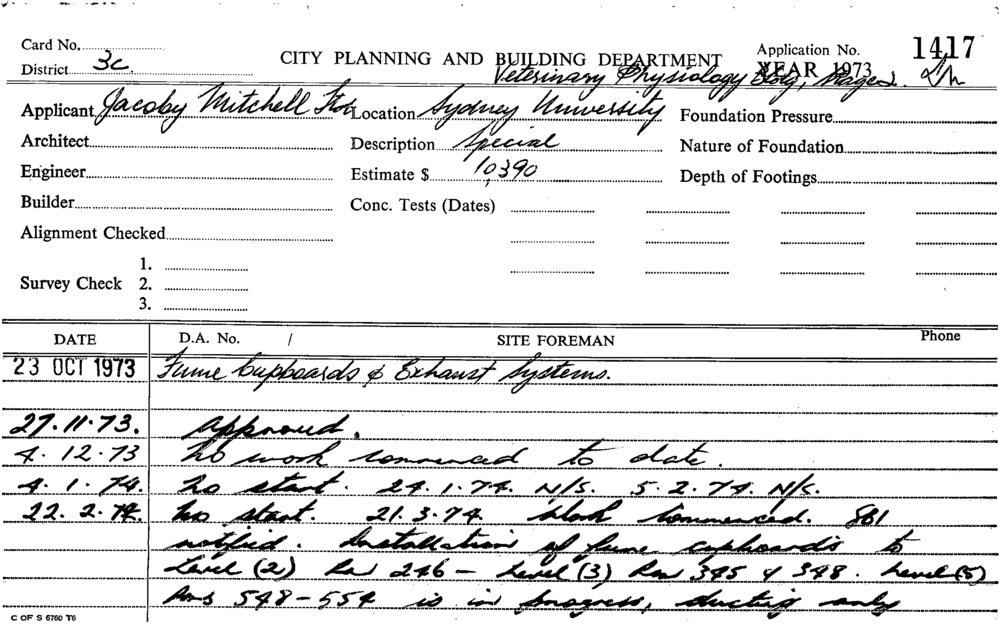 Card No. Application No. 1417
District 3c. CITY PLANNING AND BUILDING DEPARTMENT YEAR 1973
Veterinary Physiology Bldg,
Applicant Jacoby Mitchell Location Sydney University Foundation Pressure
Architect Description Special Nature of Foundation
Engineer Estimate $ 10,390 Depth of Footings
Builder Conc. Tests (Dates)
Alignment Checked
1.
Survey Check 2.
3.
DATE D.A. No. / SITE FOREMAN Phone
23 OCT 1973 Fume Cupboards & Exhaust Systems.
27.11.73. Approved.
4.12.73 No work commenced to date.
4.1.74. No start. 24.1.74. N/S. 5.2.74. N/S.
22.2.74. No start. 21.3.74 Work Commenced. 861
notified. Installation of fume cupboards to
Level (2) Rm 246 – Level (3) Rms 345 & 348. Level (5)
Rms 548-554 is in progress, ducting only
C OF S 6760 T6